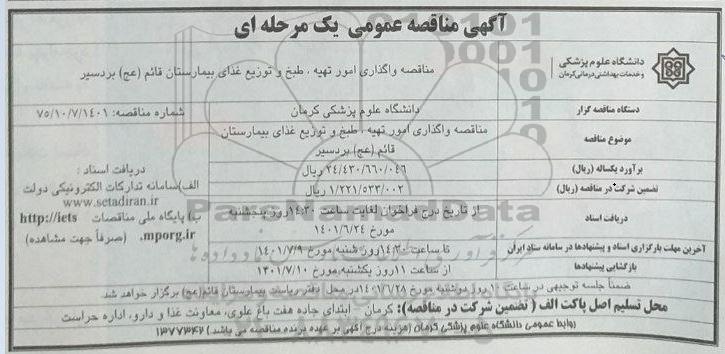 آگهی مناقصه عمومی یک مرحله ای
دانشگاه علوم پزشکی
و خدمات بهداشتی درمانی کرمان
مناقصه واگذاری امور تهیه ، طبخ و توزیع غذای بیمارستان قائم (عج) بردسیر
دستگاه مناقصه گزار
دانشگاه علوم پزشکی کرمان
شماره مناقصه: ۷۵/۱۰/۷/۱۴۰۱
موضوع مناقصه
مناقصه واگذاری امور تهیه ، طبخ و توزیع غذای بیمارستان
قائم (عج) بردسیر
برآورد یکساله (ریال)
۲۴/۴۳۰/۶۶۰/۰۴۶ ریال
تضمین شرکت در مناقصه (ریال)
۱/۲۲۱/۵۳۳/۰۰۲ ریال
دریافت اسناد
از تاریخ درج فراخوان لغایت ساعت ۱۴:۳۰ روز پنجشنبه
مورخ ۱۴۰۱/۶/۲۴
آخرین مهلت بارگزاری اسناد و پیشنهادها در سامانه ستاد ایران
تا ساعت ۱۴:۳۰ روز شنبه مورخ ۱۴۰۱/۷/۹
بازگشایی پیشنهادها
از ساعت ۱۱ روز یکشنبه مورخ ۱۴۰۱/۷/۱۰
دریافت اسناد :
الف) سامانه تدارکات الکترونیکی دولت
www.setadiran.ir
ب) پایگاه ملی مناقصات http://iets
.mporg.ir (صرفاً جهت مشاهده)
ضمناً جلسه توجیهی در ساعت ۱۰ روز دوشنبه مورخ ۱۴۰۱/۶/۲۸ در محل دفتر ریاست بیمارستان قائم(عج) برگزار خواهد شد
محل تسلیم اصل پاکت الف ( تضمین شرکت در مناقصه): کرمان ابتدای جاده هفت باغ علوی، معاونت غذا و دارو، اداره حراست
روابط عمومی دانشگاه علوم پزشکی کرمان (هزینه درج آگهی بر عهده برنده مناقصه می باشد) ۱۳۷۷۳۴۲
ParsNamadData